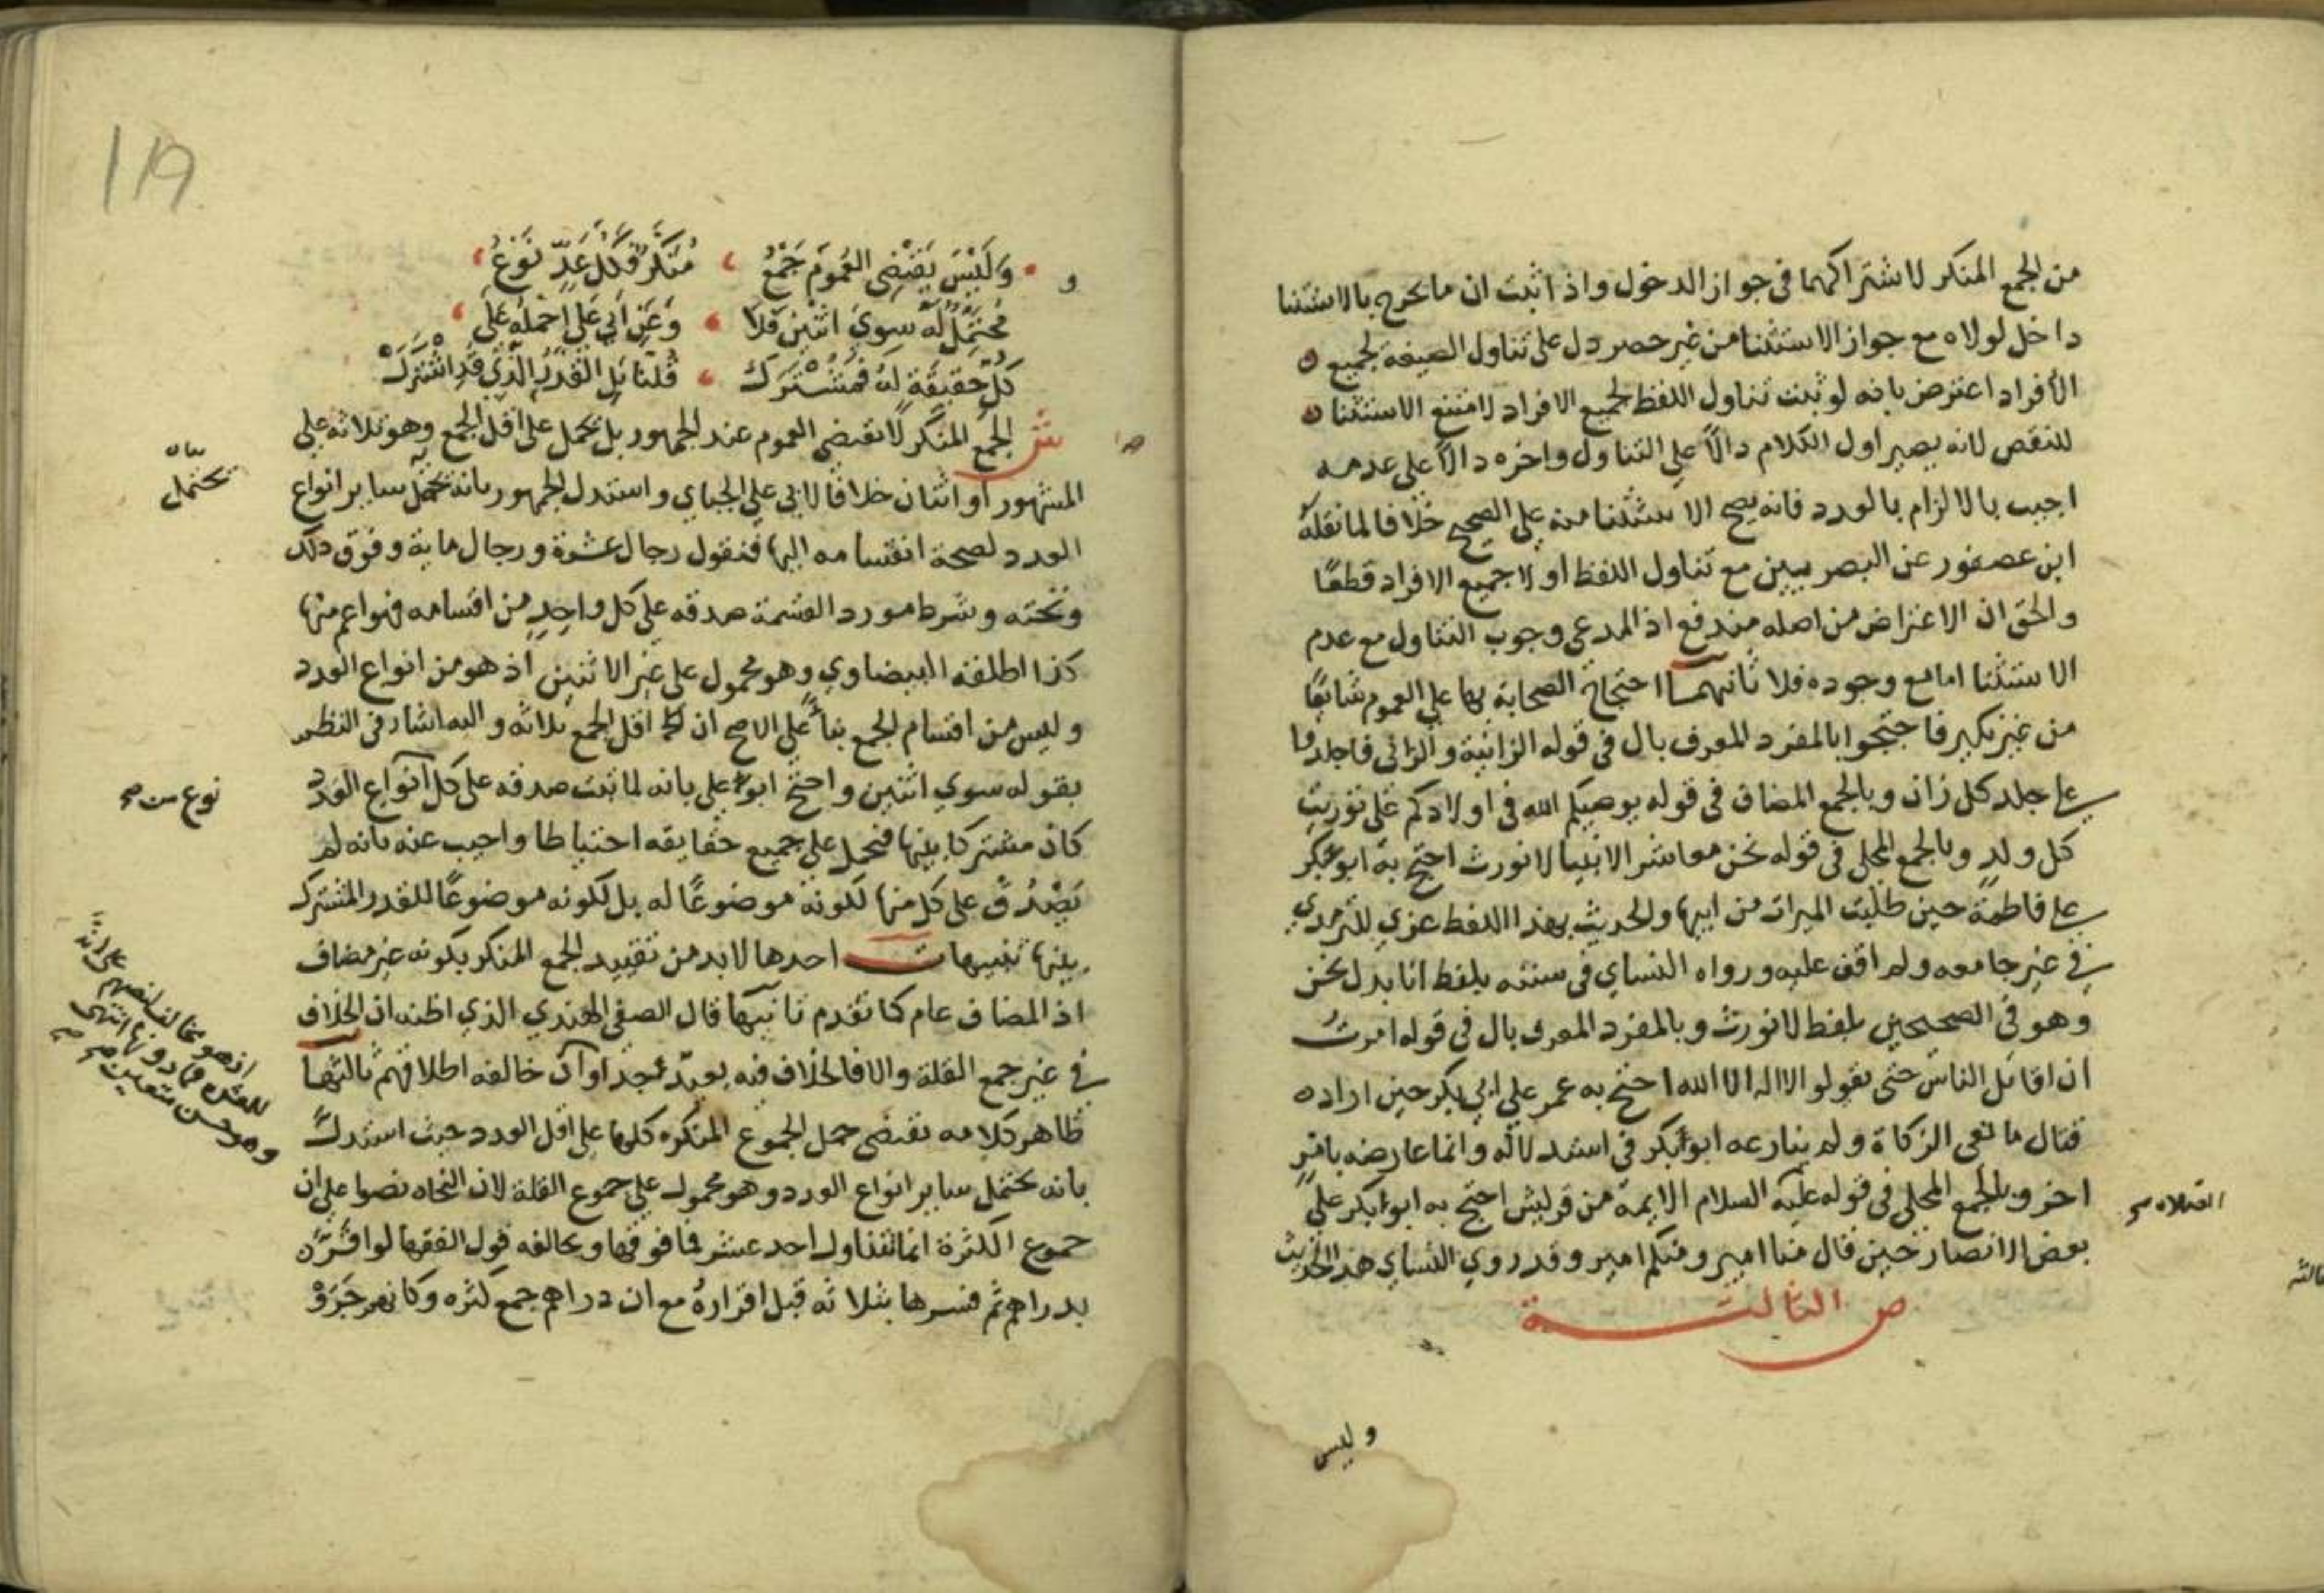 من الجمع المنكر لاشتراكهما في جواز الدخول واذا ثبت ان ما يخرج بالاستثنا
داخل لولاه مع جواز الاستثنا من غير حصر دل على تناول الصيغة لجميع
الأفراد اعترض بانه لو ثبت تناول اللفظ لجميع الافراد لامتنع الاستثنا
للنقص لانه يصير اول الكلام دالاً علي التناول واخره دالاً على عدمه
اجيب بالالزام بالعدد فانه يصح الاستثنا منه علي الصحيح خلافا لما نقله
ابن عصفور عن البصريين مع تناول اللفظ أولا جميع الافراد قطعًا
والحق ان الاعتراض من اصله مندفع اذ المدعي وجوب التناول مع عدم
الاستثنا اما مع وجوده فلا ثانيهما احتجاج الصحابة بها علي العموم شايعًا
من غير نكير فاحتجوا بالمفرد المعرف بال في قوله الزانية والزاني فاجلدوا
علي جلد كل زان وبالجمع المضاف في قوله يوصيكم الله في اولادكم علي توريث
كل ولد وبالجمع المحلي في قوله نحن معاشر الانبيا لا نورث احتج به ابو بكر
علي فاطمة حين طلبت الميراث من ابيها والحديث بهذا اللفظ عزي للترمذي
في غير جامعه ولم اقف عليه ورواه النساي في سننه بلفظ انا بدل نحن
وهو في الصحيحين بلفظ لا نورث وبالمفرد المعرف بال في قوله امرت
ان اقاتل الناس حتى يقولو الا اله الا الله احتج به عمر علي ابي بكر حين اراده
قتال مانعي الزكاة ولم ينازعه ابو بكر في استدلاله وانما عارضه بامر
اخر وبالجمع المحلي في قوله عليه السلام الايمة من قريش احتج به ابو بكر علي
بعض الانصار حين قال منا امير ومنكم امير وقد روي النساي هذا الحديث
ص الثالثة
وليس
119
وَلَيْسَ يَقْتَضِي العُمُومَ جَمْعُ مُنَكَّرٌ فَكُلُّ عَدٍّ نَوْعُ
مُحْتَمِلٌ لَهُ سِوَي اثْنَيْنِ فَلَا وَعَنْ اَبِي عَلِي احْمِلْهُ عَلَي
كُلٍّ حَقِيقَةٍ لَهُ فَمُشْتَرَك قُلْنَا بَلِ القَدْرُ الَّذِي قَدِ اشْتَرَكْ
ش الجمع المنكر لا يقتضي العموم عند الجمهور بل يحمل على اقل الجمع وهو ثلاثة علي
المشهور او اثنان خلافًا لابي علي الجباي واستدل الجمهور بانه يحتمل ساير انواع
العدد لصحة انقسامه اليها فنقول رجال عشرة ورجال ماية وفوق ذلك
وتحته وشرط مورد القسمة صدقه علي كل واحدٍ من اقسامه فهو اعم منها
كذا اطلقه البيضاوي وهو محمول علي غير الاثنين اذ هو من انواع العدد
وليس من اقسام الجمع بناءً علي الاصح ان اقل الجمع ثلاثة واليه اشار في النظم
بقوله سوي اثنين واحتج ابو علي بانه لما ثبت صدقه على كل انواع العدد
كان مشتركا بينها فيحمل علي جميع حقايقه احتياطا واجيب عنه بانه لم
يَصْدُقْ على كل منها لكونه موضوعًا له بل لكونه موضوعًا للقدر المشترك
بينها تنبيهات احدها لا بد من تقييد الجمع المنكر بكونه غير مضاف
اذ المضاف عام كما تقدم ثانيها قال الصفي الهندي الذي اظنه ان الخلاف
في غير جمع القلة والا فالخلاف فيه بعيد جدا وان خالفه اطلاقهم ثالثها
ظاهر كلامه يقتضي حمل الجموع المنكره كلها علي اقل العدد حيث استدل
بانه يحتمل ساير انواع العدد وهو محمول علي جموع القلة لان النحاه نصوا علي ان
جموع الكثرة انما تتناول احد عشر فما فوقها ويخالفه قول الفقها لو اقرّ
بدراهم ثم فسرها بثلاثه قبل اقراره مع ان دراهم جمع كثره وكانهم جَرَوْ
يحتمل
نوع من